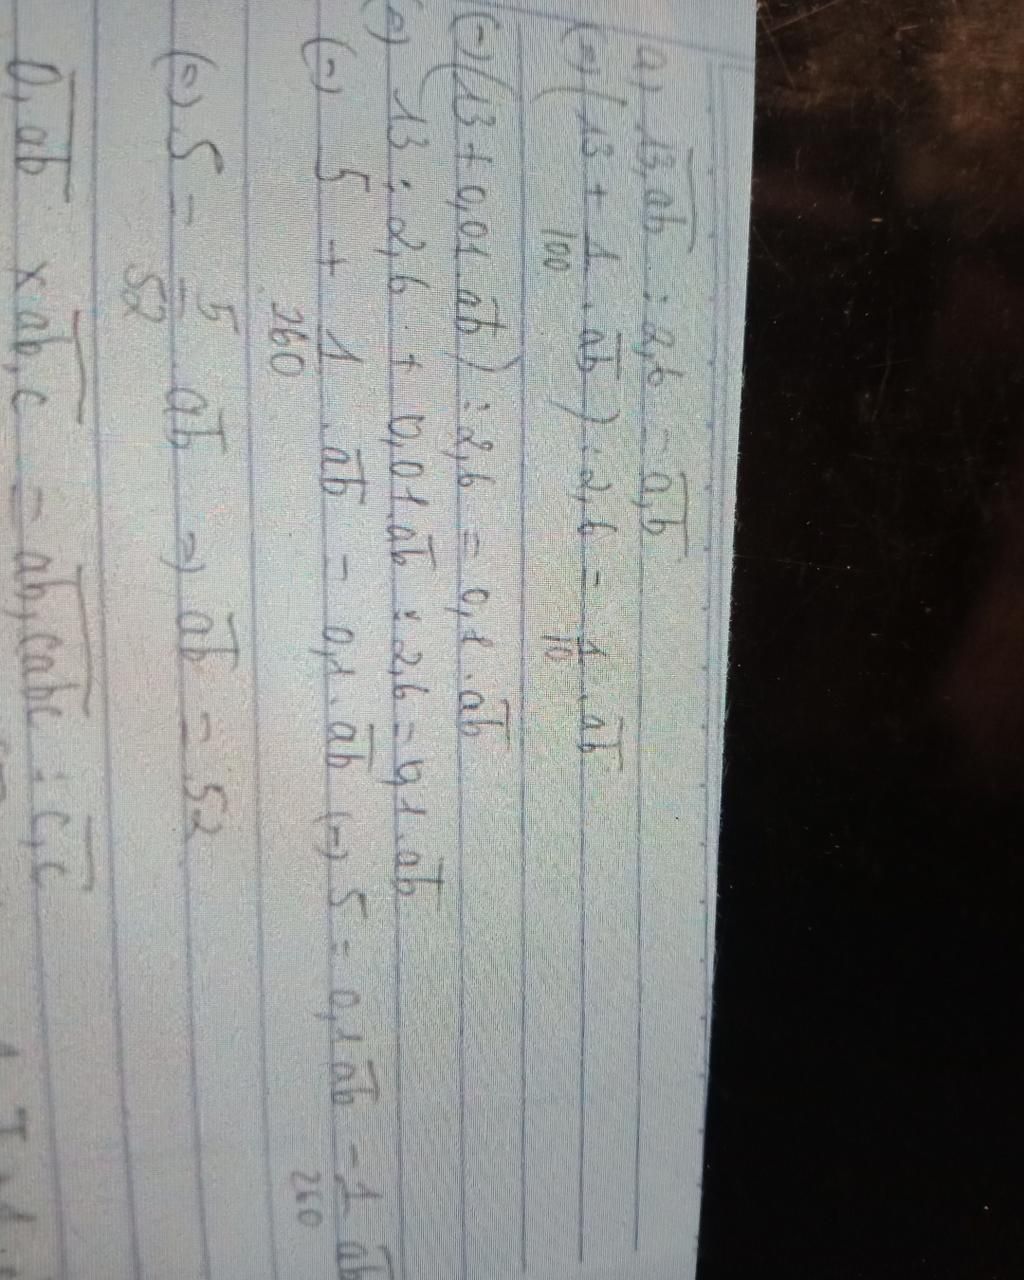 a) 13,ab : 2,6 = a,b
(=) (13 + 1/100 . ab) : 2,6 = 1/10 . ab
(=) (13 + 0,01 . ab) : 2,6 = 0,1 . ab
(=) 13 : 2,6 + 0,01 . ab : 2,6 = 0,1 . ab
(=) 5 + 1/260 . ab = 0,1 . ab (=) 5 = 0,1 ab - 1/260 ab
(=) 5 = 5/52 ab =) ab = 52
0,ab x ab,c = ab,cabc : c,c